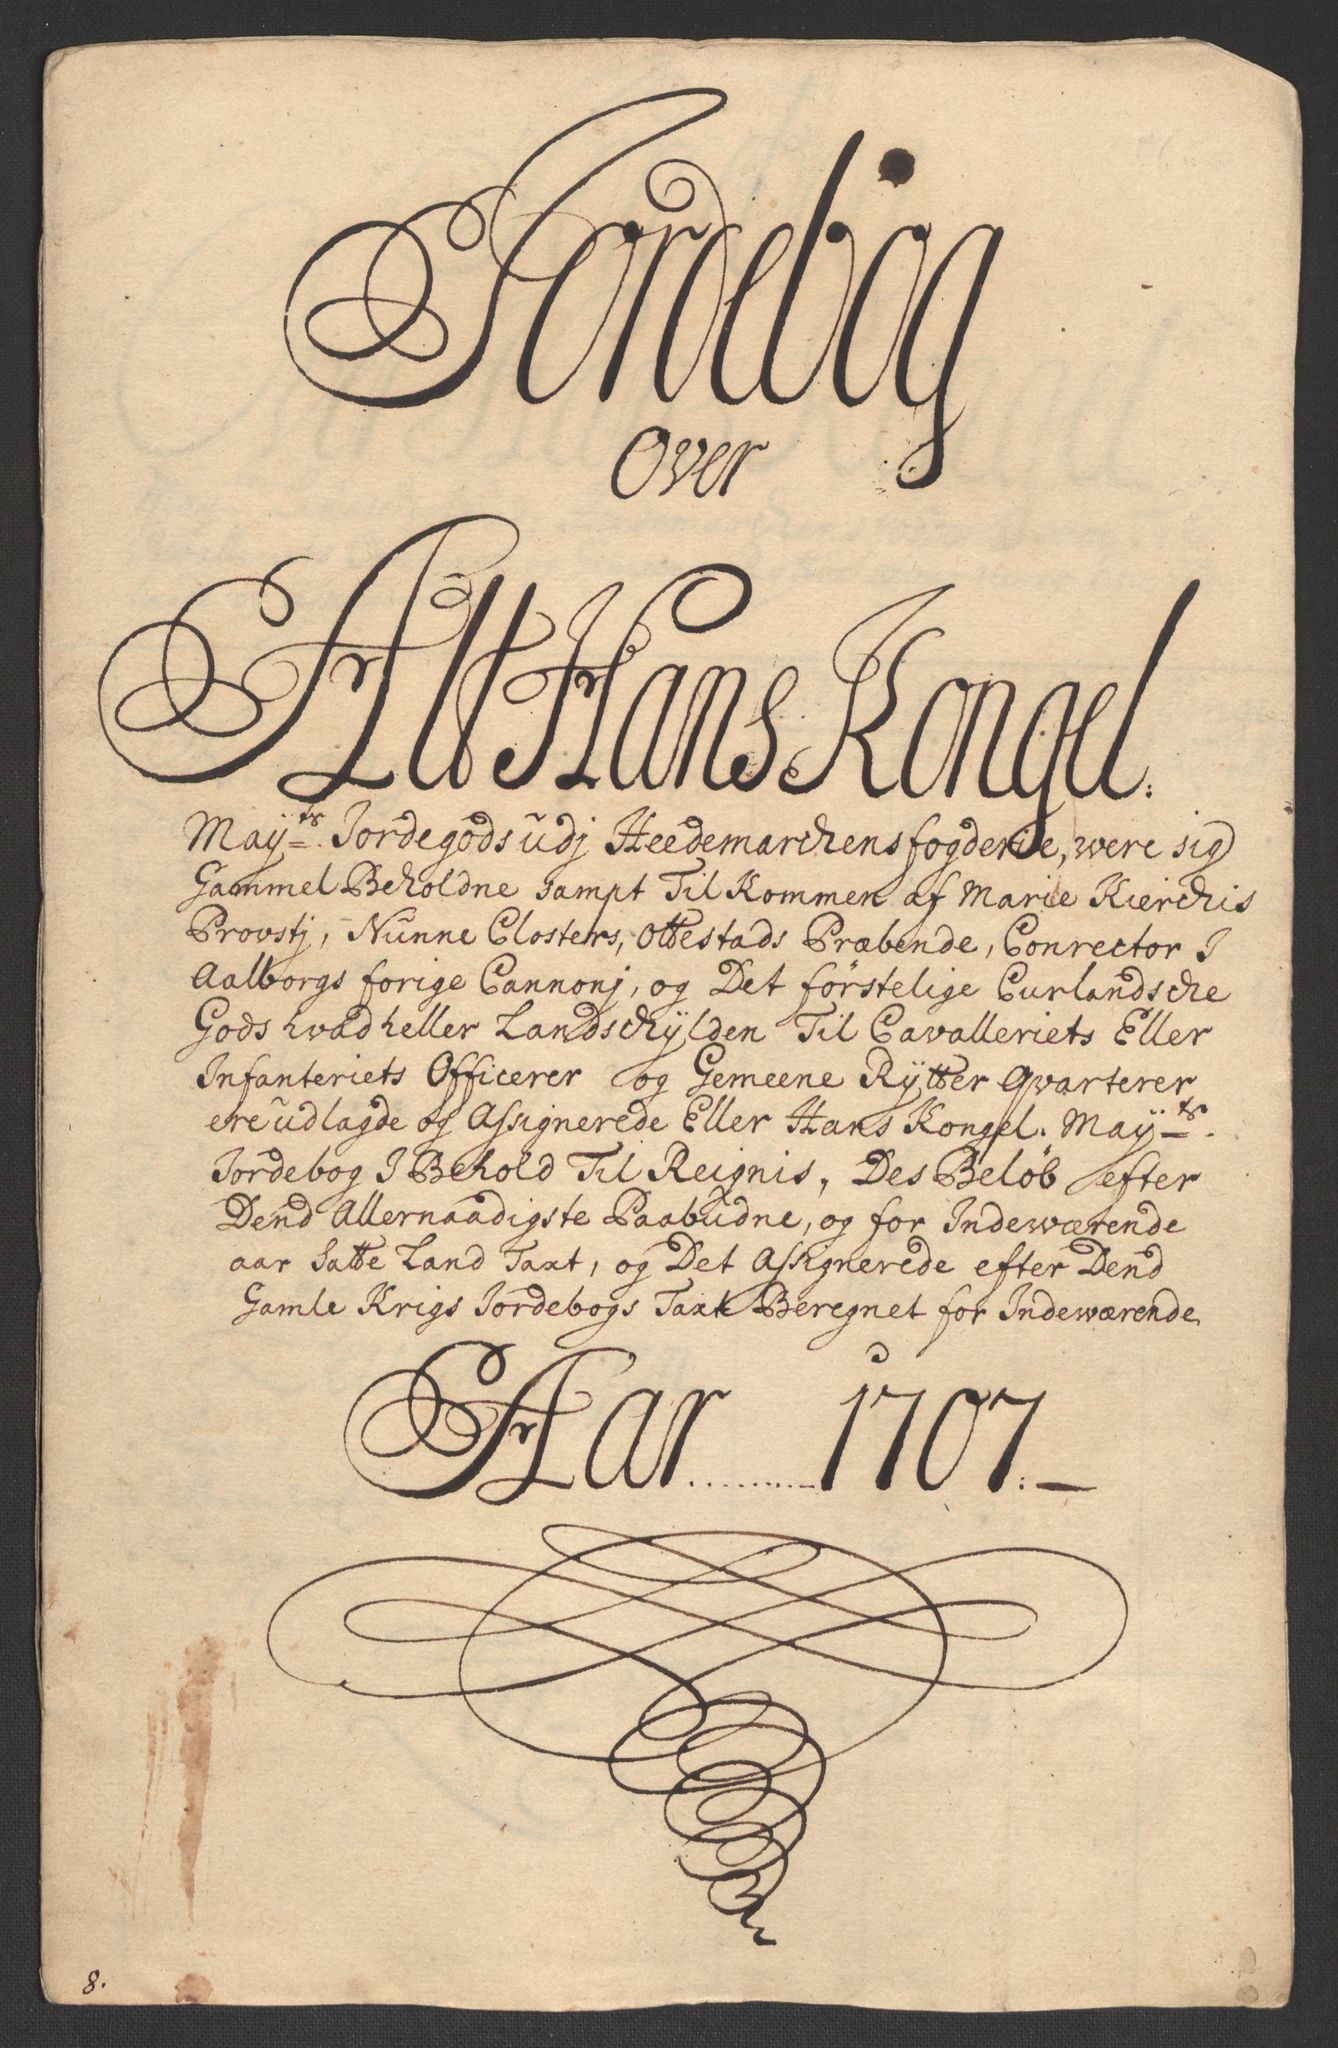 Jordebog
Over
Alt Hans Kongel:
Mayts. Jordegods udj Heedemarchens fogderie, were sig
Gammel Beholdne sampt Til Kommen af Marie Kierchis
Provstj, Nunne Closters, Ottestads Præbende, Conrector I
Aalborgs forige Cannonj, og Det förstelige Curlandsche
Gods hvad heller Landschÿlden Til Cavalleriets Eller
Infanteriets Officerer og Gemeene Rÿtter Qvarterer
ere udlagde og Assignerede Eller Hans Kongel. Maÿts.
Jordebog I Behold Til Reignis, Des Beløb efter
Dend Allernaadigste Paabudne, og for Indewærende
aar Satte Land Taxt, og Det Assignerede efter Dend
Gamle Krigs Jordebogs Taxt Beregnet for Indewærende
Aar ........ 1707.
8.